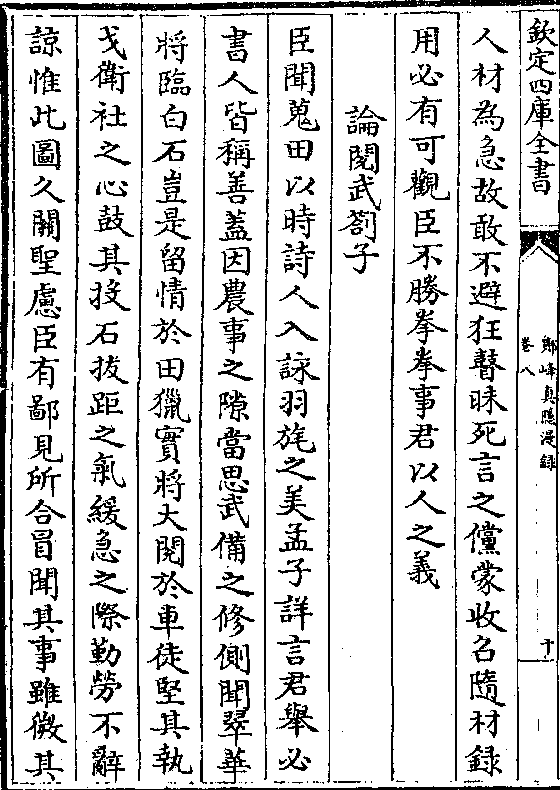 欽定四庫全書
鄮峰真隱漫録
卷八
十一
人材為急故敢不避狂瞽昧死言之儻蒙收名隨材録
用必有可觀臣不勝拳拳事君以人之義
論閱武劄子
臣聞蒐田以時詩人入詠羽旄之美孟子詳言君舉必
書人皆稱善蓋因農事之隙當思武備之修側聞翠華
將臨白石豈是留情於田獵實將大閱於車徒堅其執
戈衛社之心鼓其投石拔距之氣緩急之際勤勞不辭
諒惟此圖久關聖慮臣有鄙見所合冒聞其事雖微其